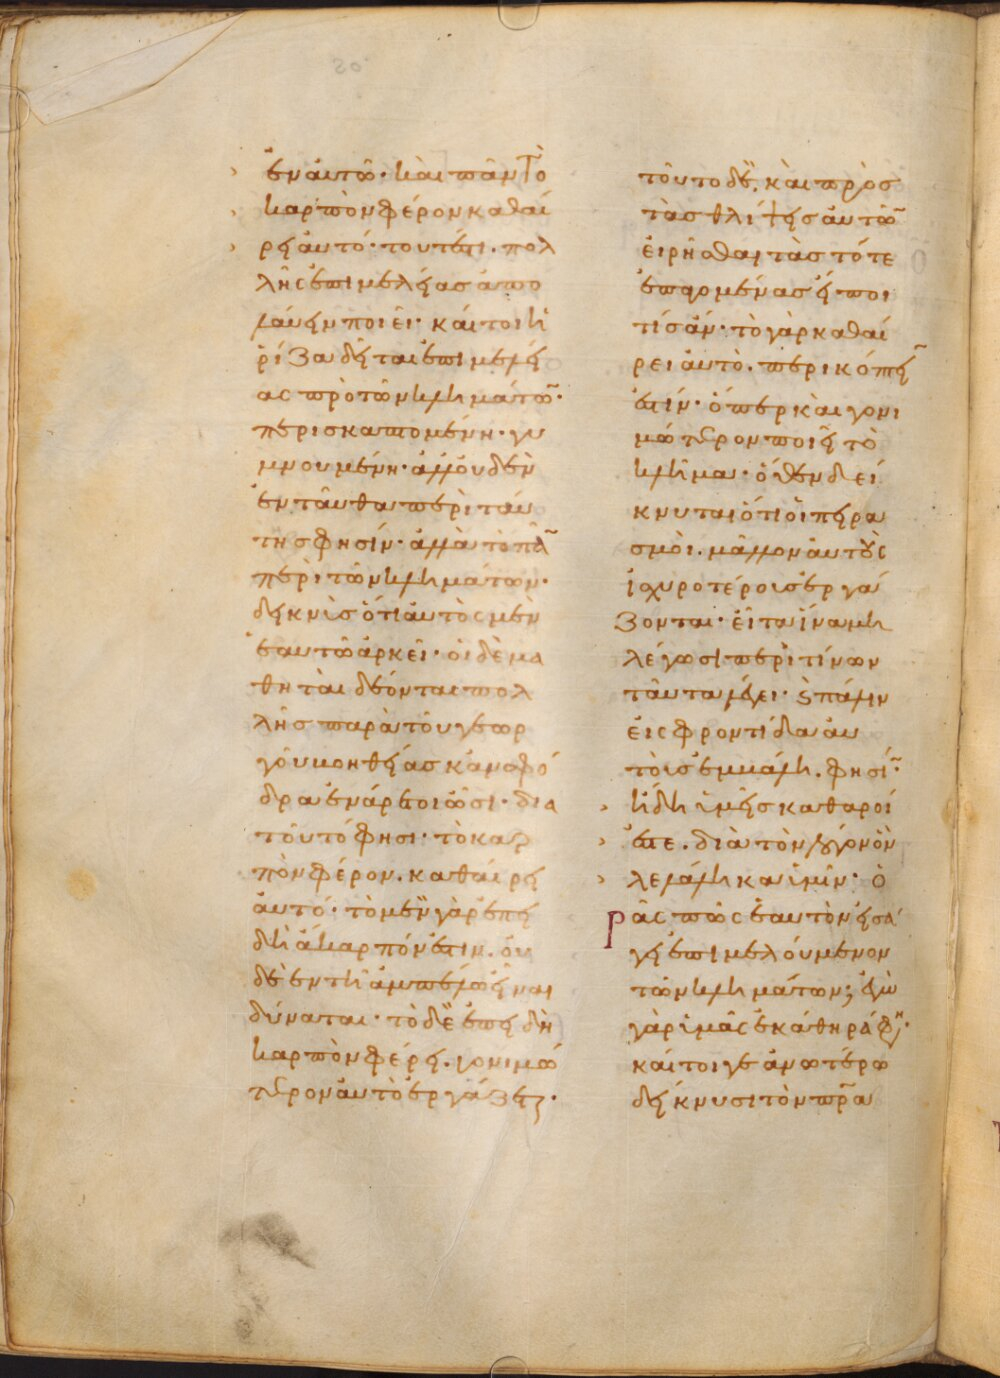 ἐν αὐτῶ· καὶ πᾶν τὸ
καρπὸν φέρον καθαί
ρει ἀυτό· τουτέστι. πολ
λῆς ἐπιμελείας ἀπο
λάυειν ποιεῖ· καίτοι ἡ
ρίζα δεῖται ἐπιμελεί
ας πρὸ τῶν κλημάτων·
περισκαπτομένη· γυ
μνουμένη· ἀλλ οὐδὲν
ἐνταῦθα περὶ ταύ
της φησίν· ἀλλὰ τὸ πᾶν
περὶ τῶν κλημάτων·
δεικνὺς ὅτι ἀυτὸς μὲν
ἑαυτῶ ἀρκεῖ· οἱ δὲ μα
θηταὶ δέονται πολ
λῆς παρὰ τοῦ γεωρ
γοῦ βοηθείας κἂν σφό
δρα ἐνάρετοι ὦσι· δια
τοῦτό φησι· τὸ καρ
πὸν φέρον. καθαίρει
ἀυτό· τὸ μὲν γὰρ ἐπει
δὴ ἄκαρπόν ἐστιν. ὀυ
δὲ ἐν τῆ ἀμπέλω εἶναι
δύναται· τὸ δὲ ἐπειδὴ
καρπὸν φέρει. γονιμώ
τερον ἀυτὸ ἐργάζεται·
τοῦτο δὲ. καὶ πρὸς
τὰς θλίψεις ἀυτῶν
ἐιρῆσθαι τὰς τότε
ἐπαγομένας εἴποι
τίς ἄν· τὸ γὰρ καθαί
ρει ἀυτὸ. περικόπτειν
ἐστίν· ὅπερ καὶ γονι
μώτερον ποιεῖ τὸ
κλῆμα· ὅθεν δεί
κνυται ὅτι ὁι πειρα
σμὸι. μᾶλλον ἀυτοὺς
ἰσχυροτέρους ἐργά
ζονται· εἶτα ἵνα μὴ
λέγωσι περὶ τίνων
ταῦτα λέγει· καὶ πάλιν
ἐις φροντίδα ἀυ
τοὺς ἐμβάλη. φησίν·
ἤδη ὑμεῖς καθαροί
ἐστε. διὰ τὸν λόγον ὃν
λελάληκα ὑμῖν· ὁ
ρᾶς πῶς ἑαυτὸν εἰσά
γει ἐπιμελούμενον
τῶν κλημάτων; ἐγὼ
γὰρ ὑμᾶς ἐκάθηρά φησιν·
καίτοιγε ἀνωτέρω
δείκνυσι τὸν πρα